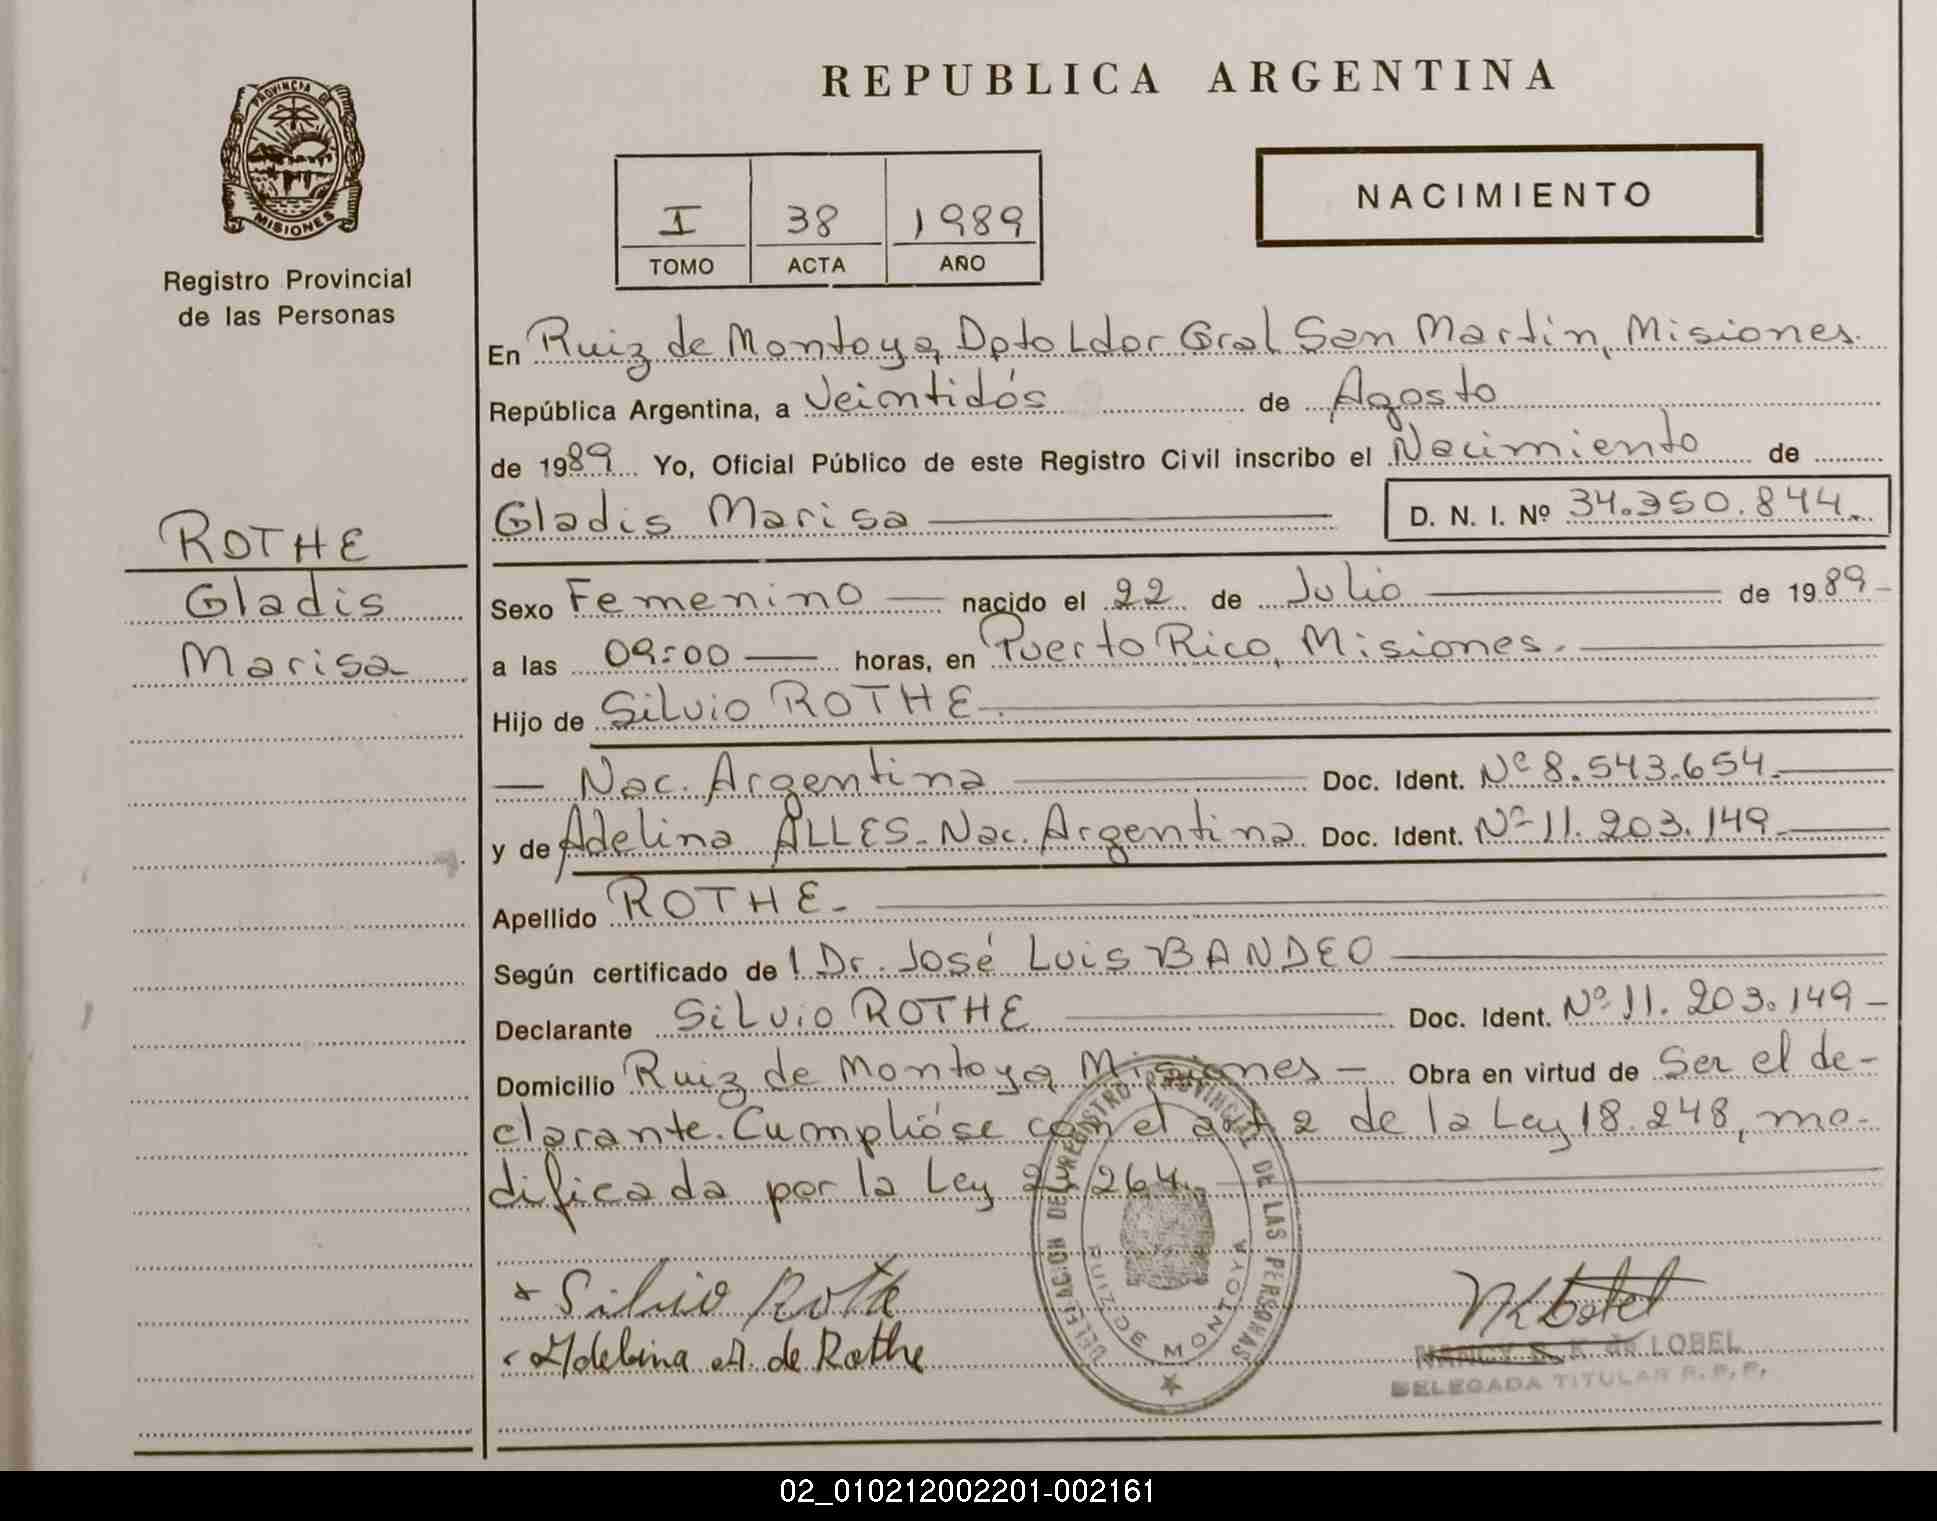 REPUBLICA ARGENTINA
PROVINCIA DE
MISIONES
Registro Provincial
de las Personas
I 38 1989
TOMO ACTA AÑO
NACIMIENTO
En Ruiz de Montoya, Dpto Ldor Gral San Martín, Misiones.
República Argentina, a Veintidós de Agosto
de 1989 Yo, Oficial Público de este Registro Civil inscribo el Nacimiento de
Gladis Marisa D. N. I. Nº 34.350.844.
ROTHE
Gladis
Marisa
Sexo Femenino nacido el 22 de Julio de 1989
a las 09:00 horas, en Puerto Rico, Misiones.
Hijo de Silvio ROTHE.
Nac. Argentina Doc. Ident. Nº 8.543.654.
y de Adelina ALLES. Nac. Argentina Doc. Ident. Nº 11.203.149
Apellido ROTHE.
Según certificado de l Dr. José Luis BANDEO
Declarante Silvio ROTHE Doc. Ident. Nº 11.203.149
Domicilio Ruiz de Montoya, Misiones Obra en virtud de Ser el de-
clarante. Cumplióse con el art. 2 de la Ley 18.248, mo-
dificada por la Ley 264.
DELEGACION DEL REGISTRO PROVINCIAL DE LAS PERSONAS
RUIZ DE MONTOYA
Silvio Rothe
Adelina A. de Rothe
NANCY S. K. de LOBEL
DELEGADA TITULAR R.P.P.
02_010212002201-002161